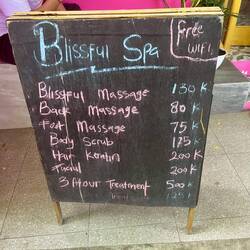 Blissful Spa
Free
WiFi
Blissful Massage 130 K
Back Massage 80 K
Foot Massage 75 K
Body Scrub 175 K
Hair Keratin 200 K
Facial 200 K
3 Hour Treatment 500 K